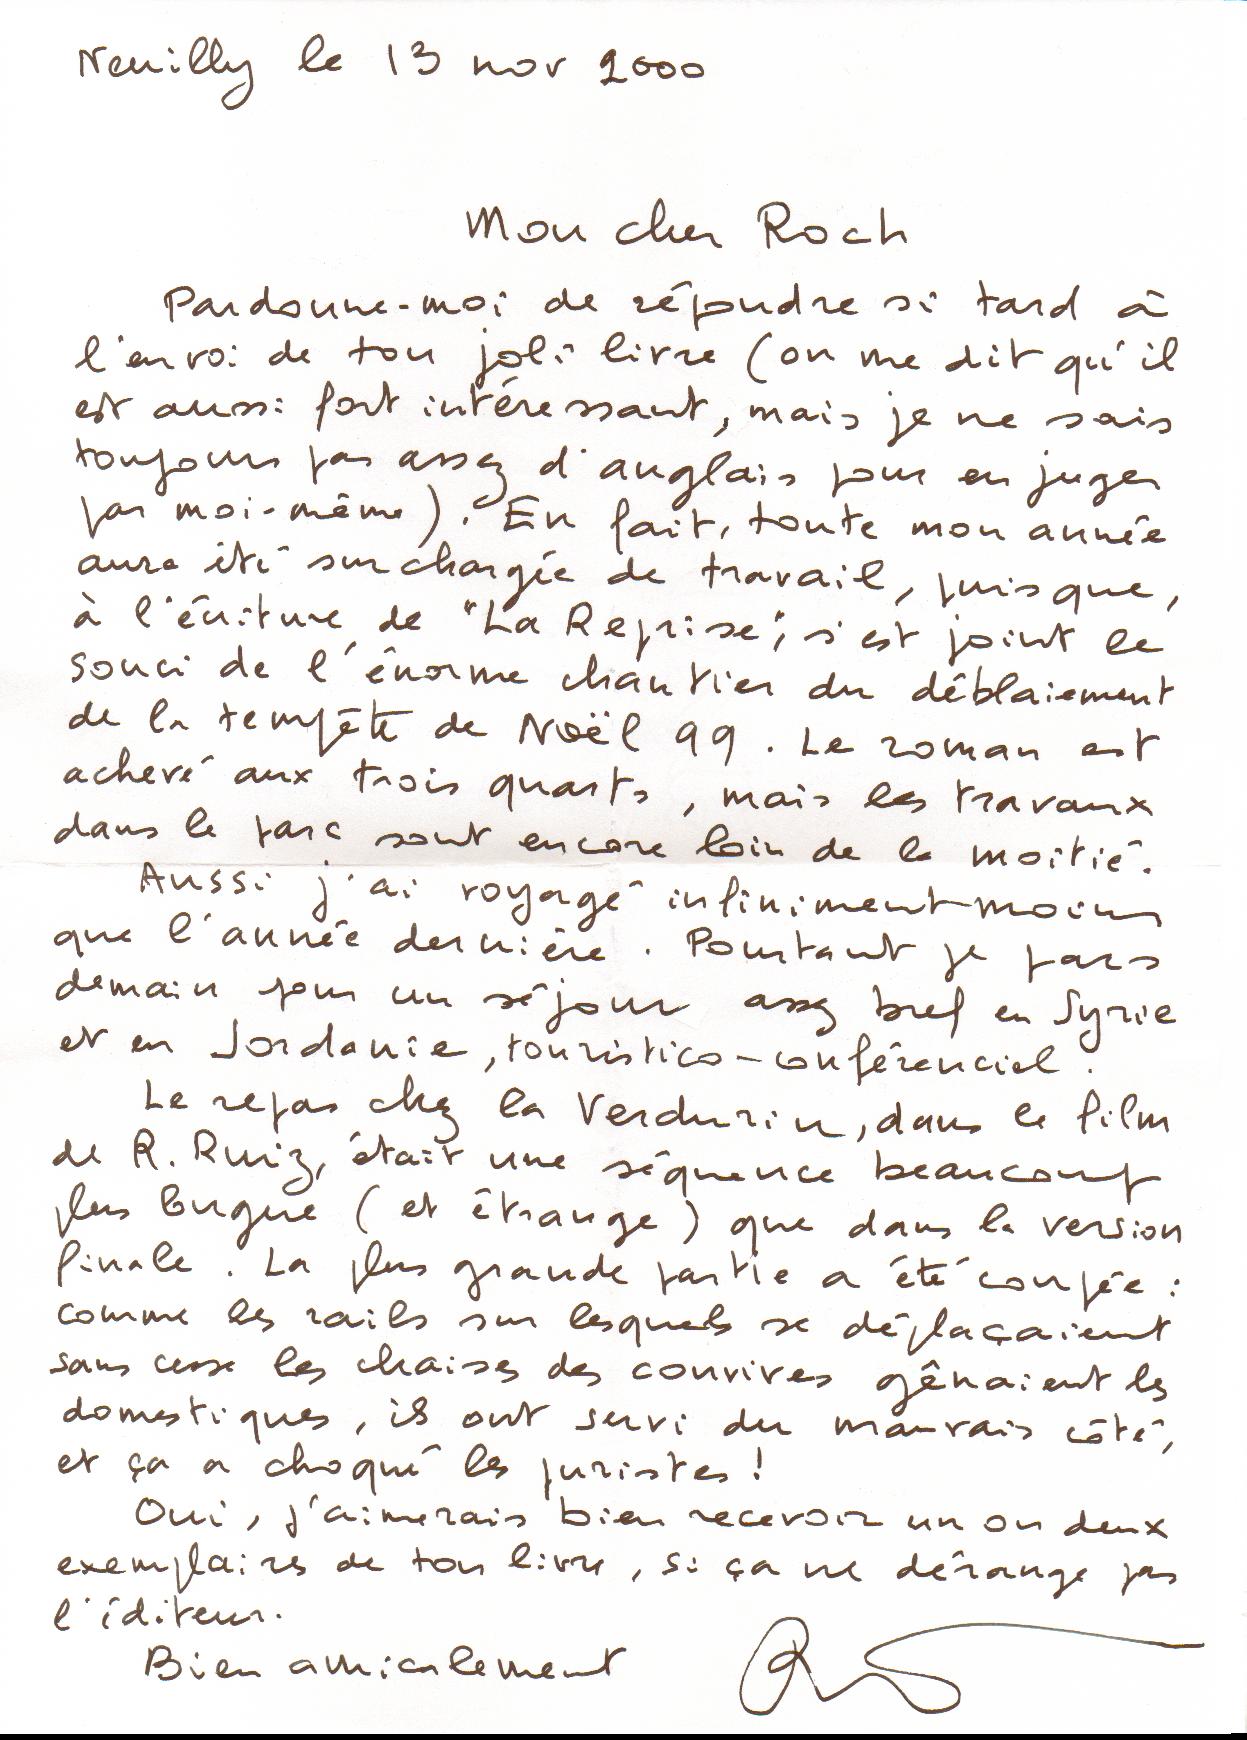 Neuilly le 13 nov 2000
Mon cher Roch
Pardonne-moi de répondre si tard à
l'envoi de ton joli livre (on me dit qu'il
est aussi fort intéressant, mais je ne sais
toujours pas assez d'anglais pour en juger
par moi-même). En fait, toute mon année
aura été surchargée de travail, puisque,
à l'écriture de "La Reprise", s'est joint le
souci de l'énorme chantier du déblaiement
de la tempête de Noël 99. Le roman est
achevé aux trois quarts, mais les travaux
dans le parc sont encore loin de la moitié.
Aussi j'ai voyagé infiniment moins
que l'année dernière. Pourtant je pars
demain pour un séjour assez bref en Syrie
et en Jordanie, touristico-conférenciel.
Le repas chez la Verdurin, dans le film
de R. Ruiz, était une séquence beaucoup
plus longue (et étrange) que dans la version
finale. La plus grande partie a été coupée :
comme les rails sur lesquels se déplaçaient
sans cesse les chaises des convives gênaient les
domestiques, ils ont servi du mauvais côté,
et ça a choqué les puristes !
Oui, j'aimerais bien recevoir un ou deux
exemplaires de ton livre, si ça ne dérange pas
l'éditeur.
Bien amicalement